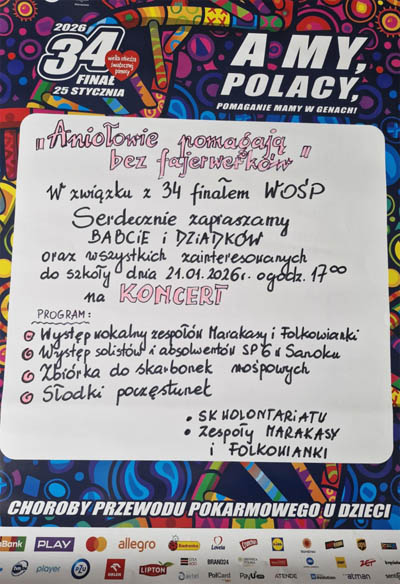 2026
34
FINAŁ
25 STYCZNIA
wielka orkiestra
świątecznej
pomocy
A MY,
POLACY,
POMAGANIE MAMY W GENACH!
"Aniołowie pomagają
bez fajerwerków"
W związku z 34 finałem WOŚP
Serdecznie zapraszamy
BABCIE i DZIADKÓW
oraz wszystkich zainteresowanych
do szkoły dnia 21.01.2026r. o godz. 17⁰⁰
na KONCERT
PROGRAM:
Występ wokalny zespołów Marakasy i Folkowianki
Występ solistów i absolwentów SP 6 w Sanoku
Zbiórka do skarbonek wośpowych
Słodki poczęstunek
• SK WOLONTARIATU
• Zespoły MARAKASY
i FOLKOWIANKI
CHOROBY PRZEWODU POKARMOWEGO U DZIECI
mBank PLAY allegro Biedronka Lovela
player ORLEN LIPTON airtel BRAND24 PolCard PayU ATENDE atman